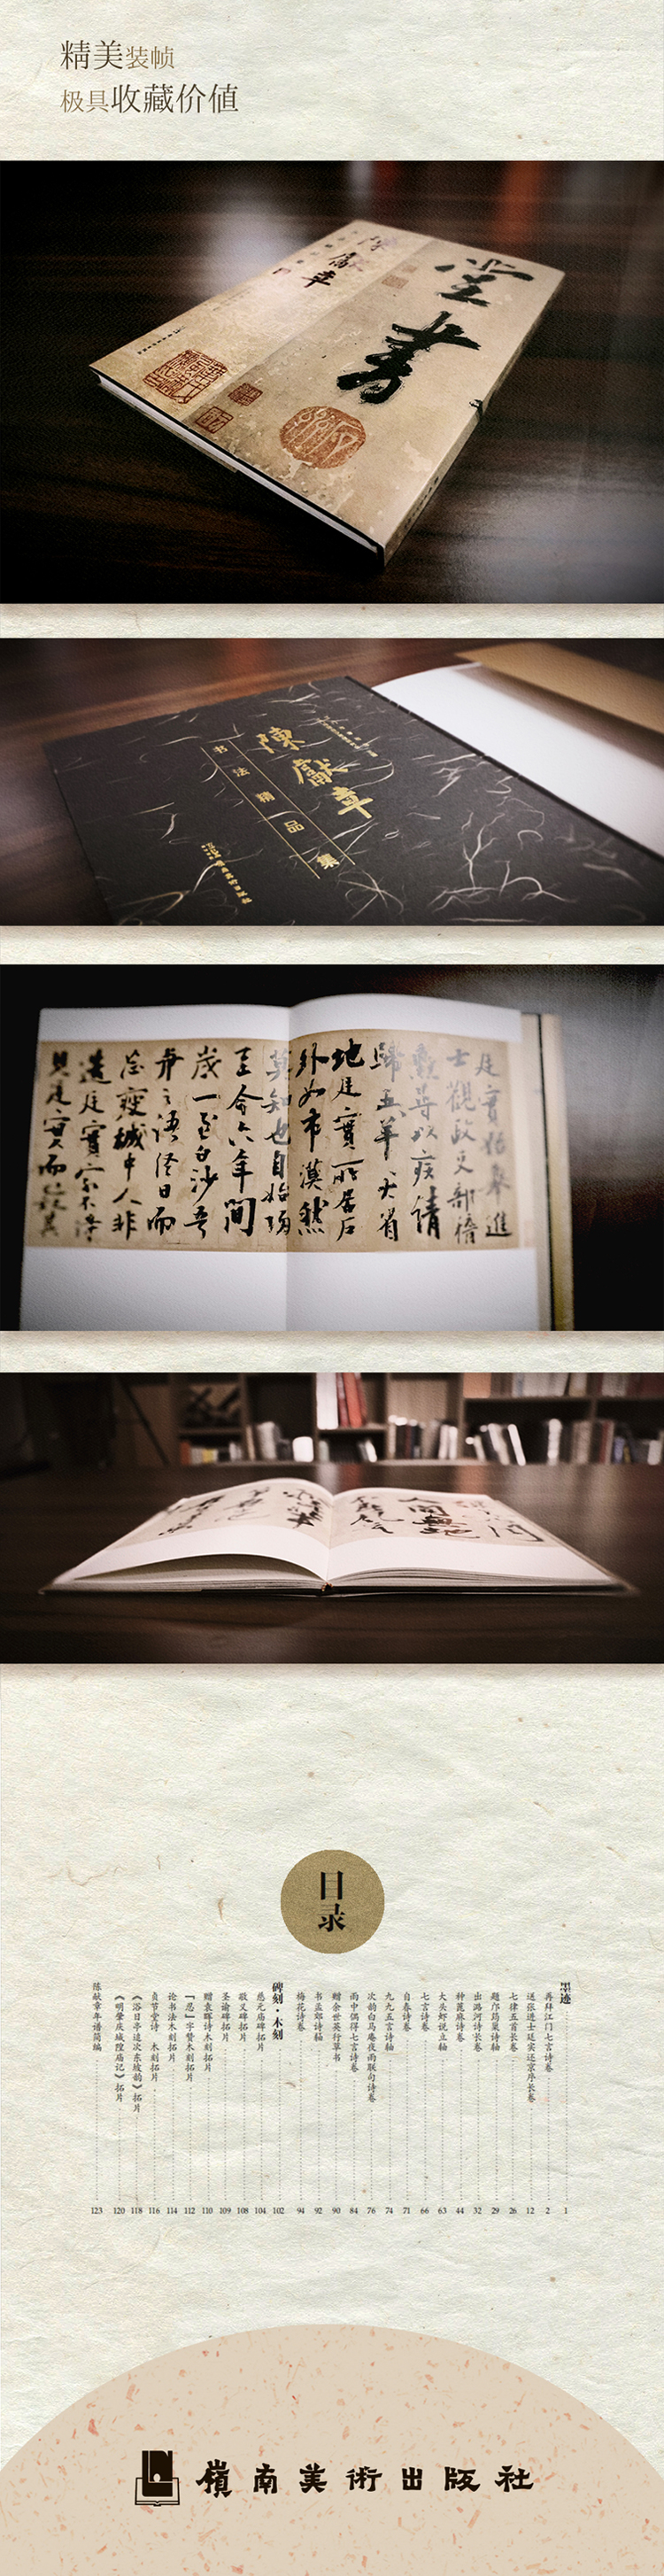 精美装帧
极具收藏价值
陳獻章
堂書
陳獻章
书法精品集
廷實始舉進
士觀政吏部稽
勳尋以疾請
歸五羊天省
地廷實所居戶
外如市漠然
莫知也自始
至今六年間
歲一至白沙吾
目录
墨迹 1
再拜江门七言诗卷 2
送张进士廷实还京序长卷 12
七律五首长卷 26
题邝筠巢诗轴 29
出潞河诗长卷 32
种蓖麻诗卷 44
大头虾说立轴 63
七言诗卷 66
自春诗卷 71
九九五言诗轴 74
次韵白马庵夜雨联句诗卷 76
雨中偶得七言诗卷 84
赠余世英行草书 90
书孟郊诗轴 92
梅花诗卷 94
碑刻·木刻 102
慈元庙碑拓片 104
敬义碑拓片 108
圣谕碑拓片 109
赠袁晖诗木刻拓片 110
『忍』字赞木刻拓片 112
论书法木刻拓片 114
贞节堂诗 木刻拓片 116
《浴日亭追次东坡韵》拓片 118
《明肇庆城隍庙记》拓片 120
陈献章年谱简编 123
嶺南美術出版社